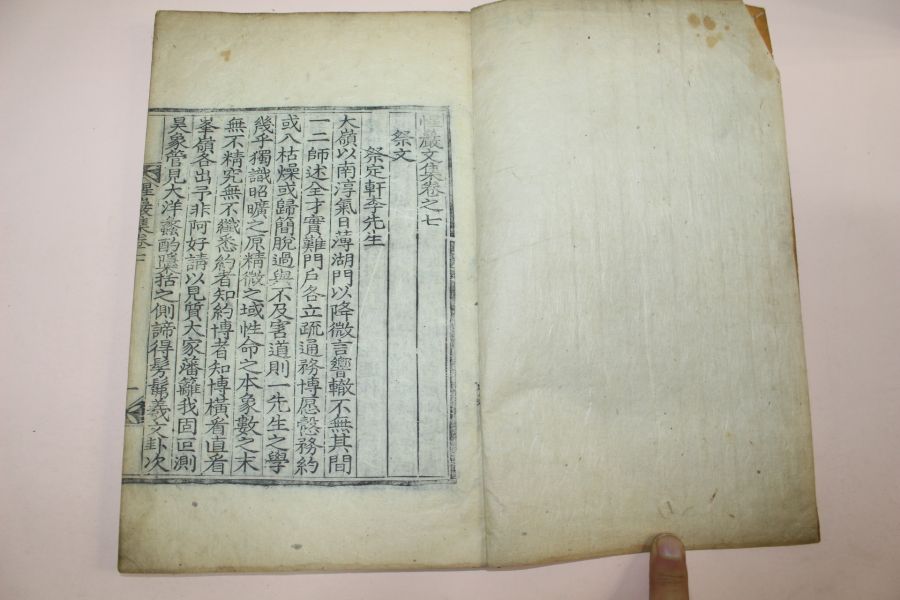 惺巖文集卷之七
祭文
祭定軒李先生
大嶺以南淳氣日薄湖門以降微言響轍不無其間
一二師述全才實難門戶各立疏通務博愿慤務約
或入枯燥或歸簡脫過與不及害道則一先生之學
幾乎獨識昭曠之原精微之域性命之本象數之末
無不精究無不纖悉約者知約博者知博橫看直看
峯嶺各出予非阿好請以見質大家藩籬我固叵測
昊象管見大洋蠡酌櫽括之側諦得髣髴羲文卦次
惺巖集卷七